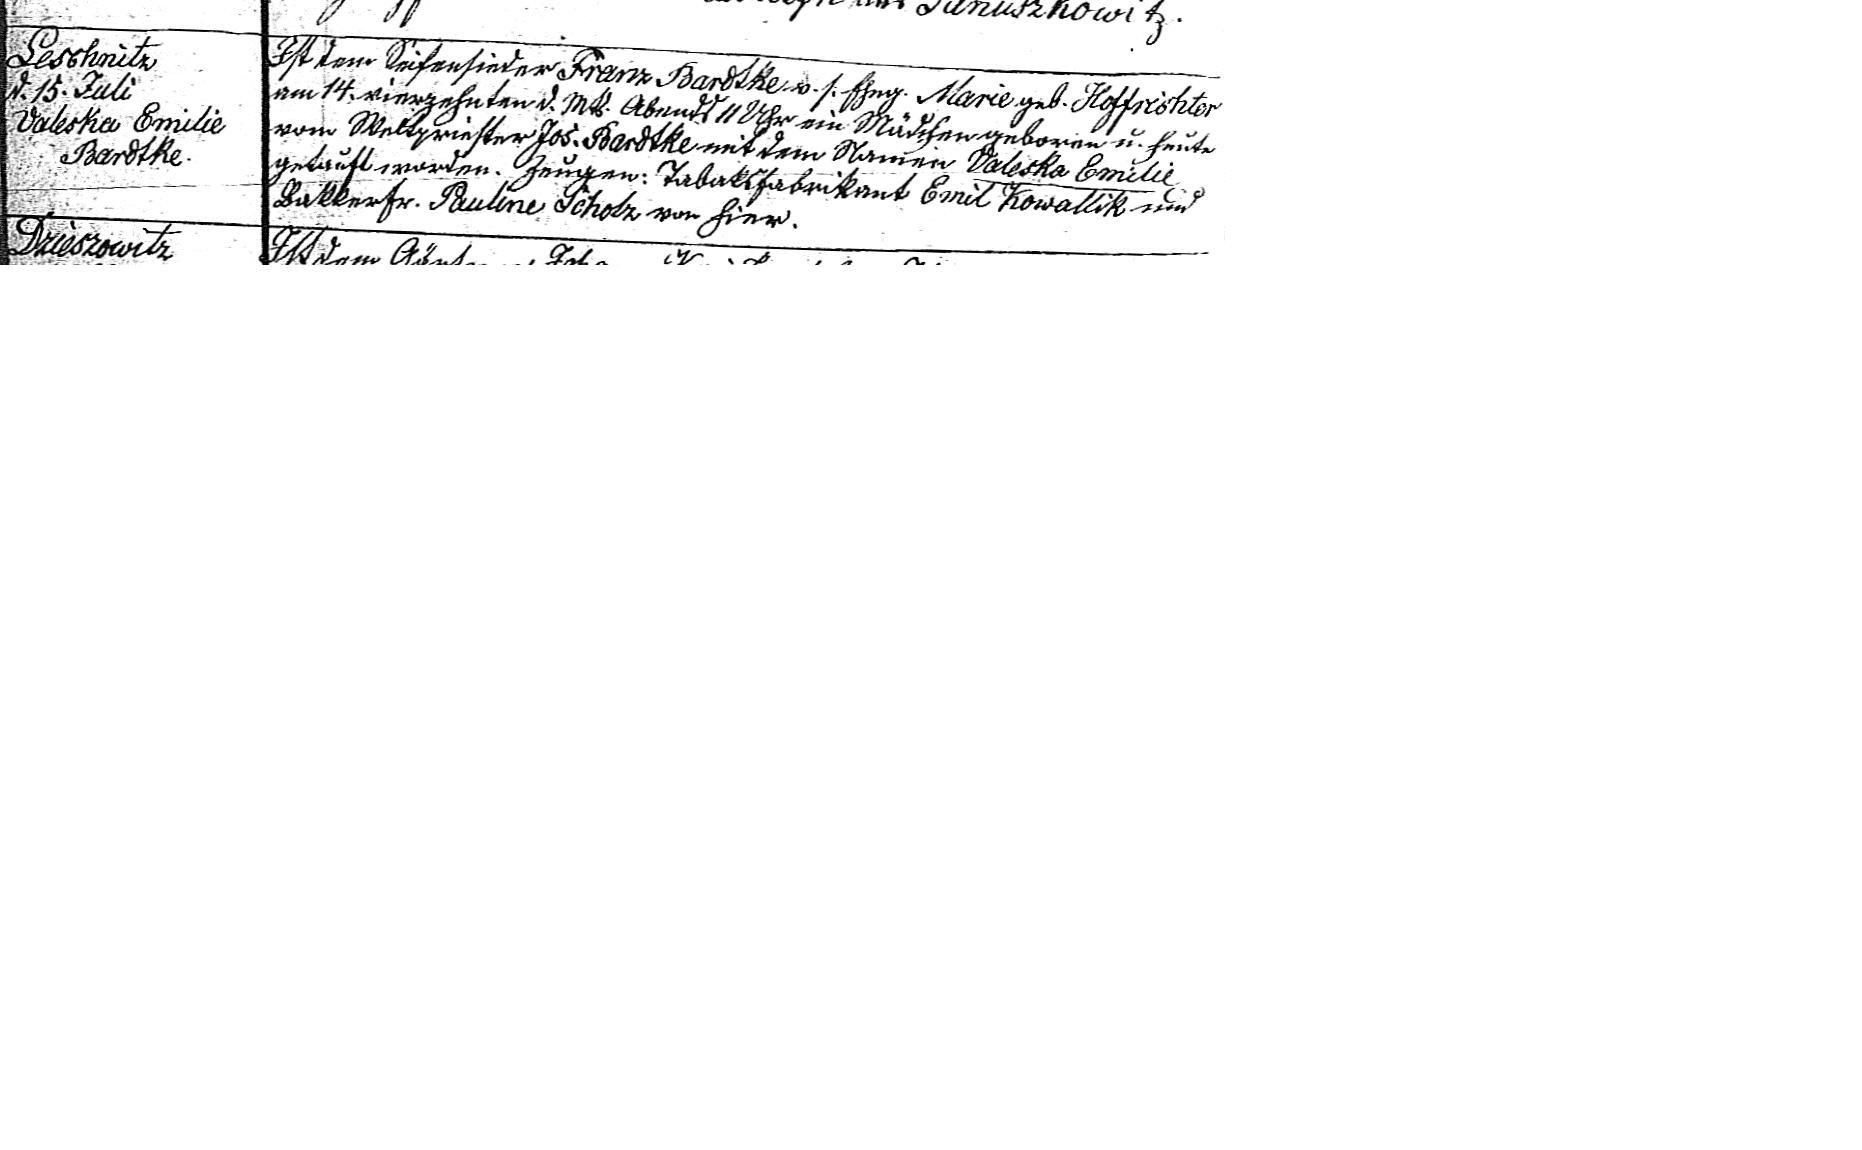 Januszkowitz.
Leschnitz
d. 15. Juli
Valeska Emilie
Bardtke.
Ist dem Seifensieder Franz Bardtke v. s. Eheg. Marie geb. Hoffrichter
am 14. vierzehnten d. Mts. Abends 11 Uhr ein Mädchen geboren u. heute
vom Weltpriester Jos. Bardtke mit dem Namen Valeska Emilie
getauft worden. Zeugen: Tabaksfabrikant Emil Kowallik und
Bäkkerfr. Pauline Scholz von hier.
Drieszowitz
Ist dem